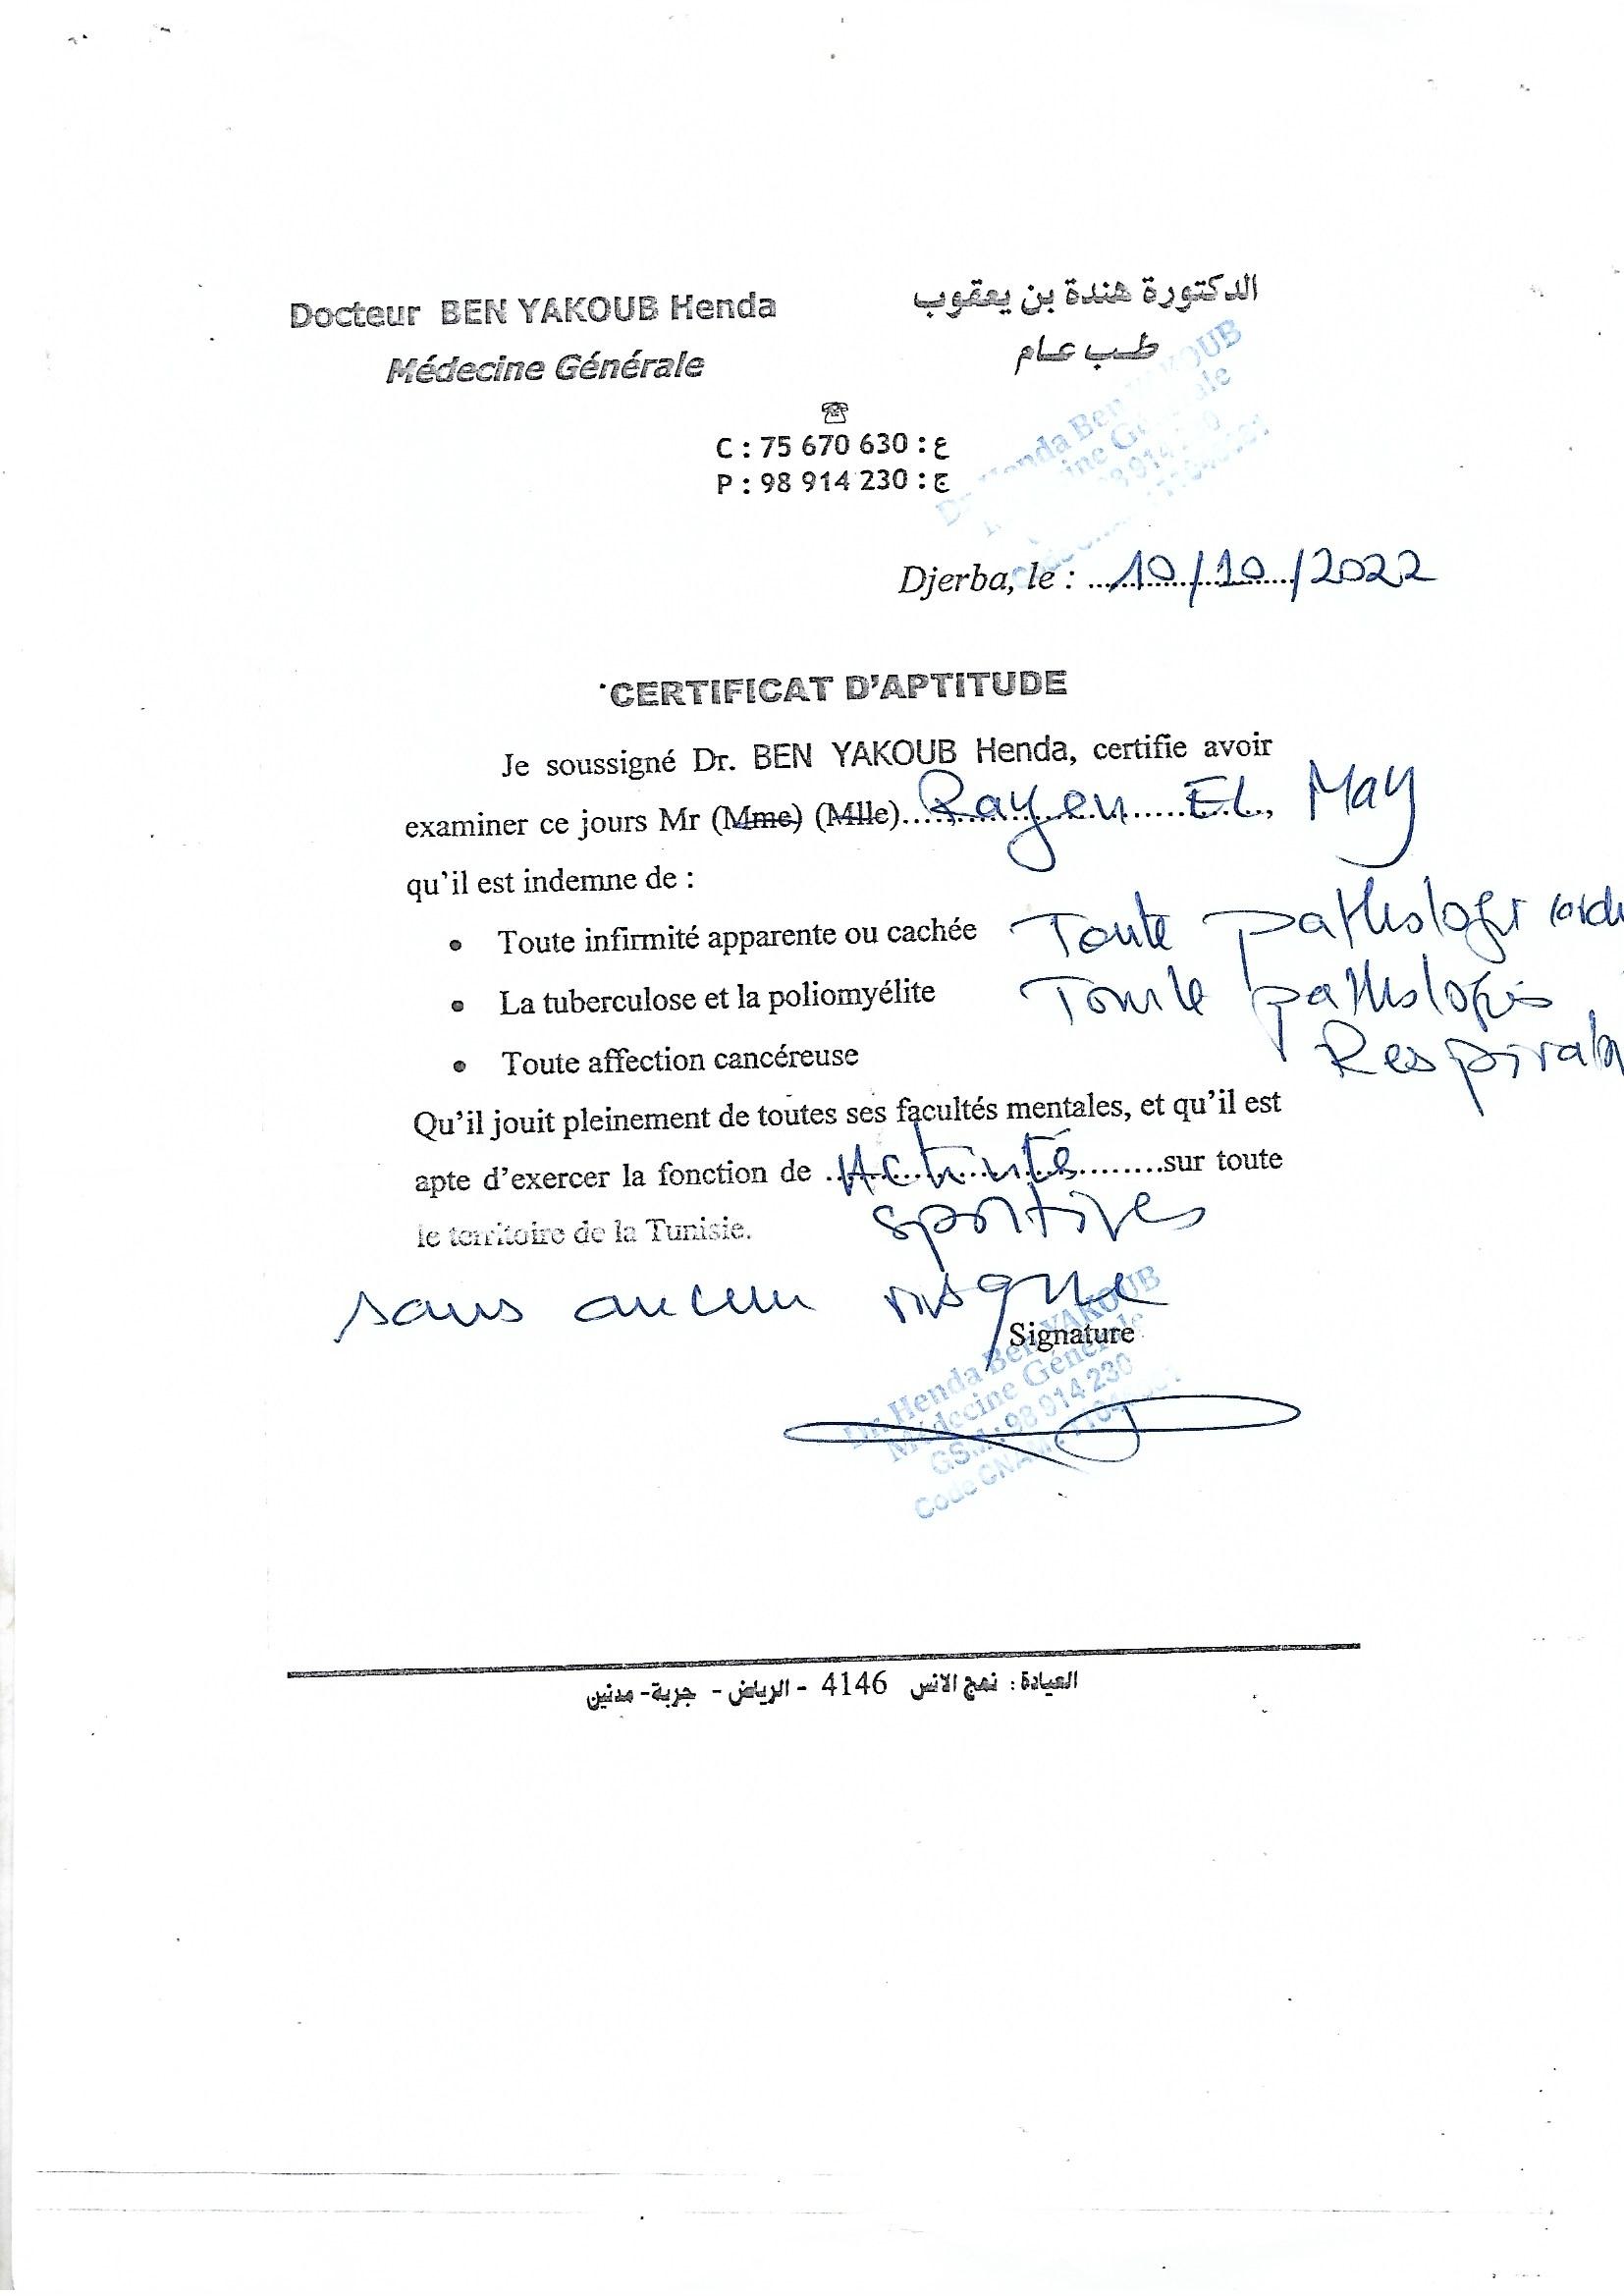 Docteur BEN YAKOUB Henda
Médecine Générale
الدكتورة هندة بن يعقوب
طب عام
C : 75 670 630 : ع
P : 98 914 230 : ج
Djerba, le : 10/10/2022
CERTIFICAT D'APTITUDE
Je soussigné Dr. BEN YAKOUB Henda, certifie avoir
examiner ce jours Mr (Mme) (Mlle) Rayen EL May,
qu'il est indemne de :
• Toute infirmité apparente ou cachée Toute
• La tuberculose et la poliomyélite Toute pathologie
Respirato
• Toute affection cancéreuse
Qu'il jouit pleinement de toutes ses facultés mentales, et qu'il est
apte d'exercer la fonction de Activités sur toute
sportives
le territoire de la Tunisie.
sans aucun risque
Signature
Dr. Henda Ben YAKOUB
Médecine Générale
GSM : 98 914 230
Code CNAM
العيادة : نهج الانس 4146 - الرياض - جربة- مدنين